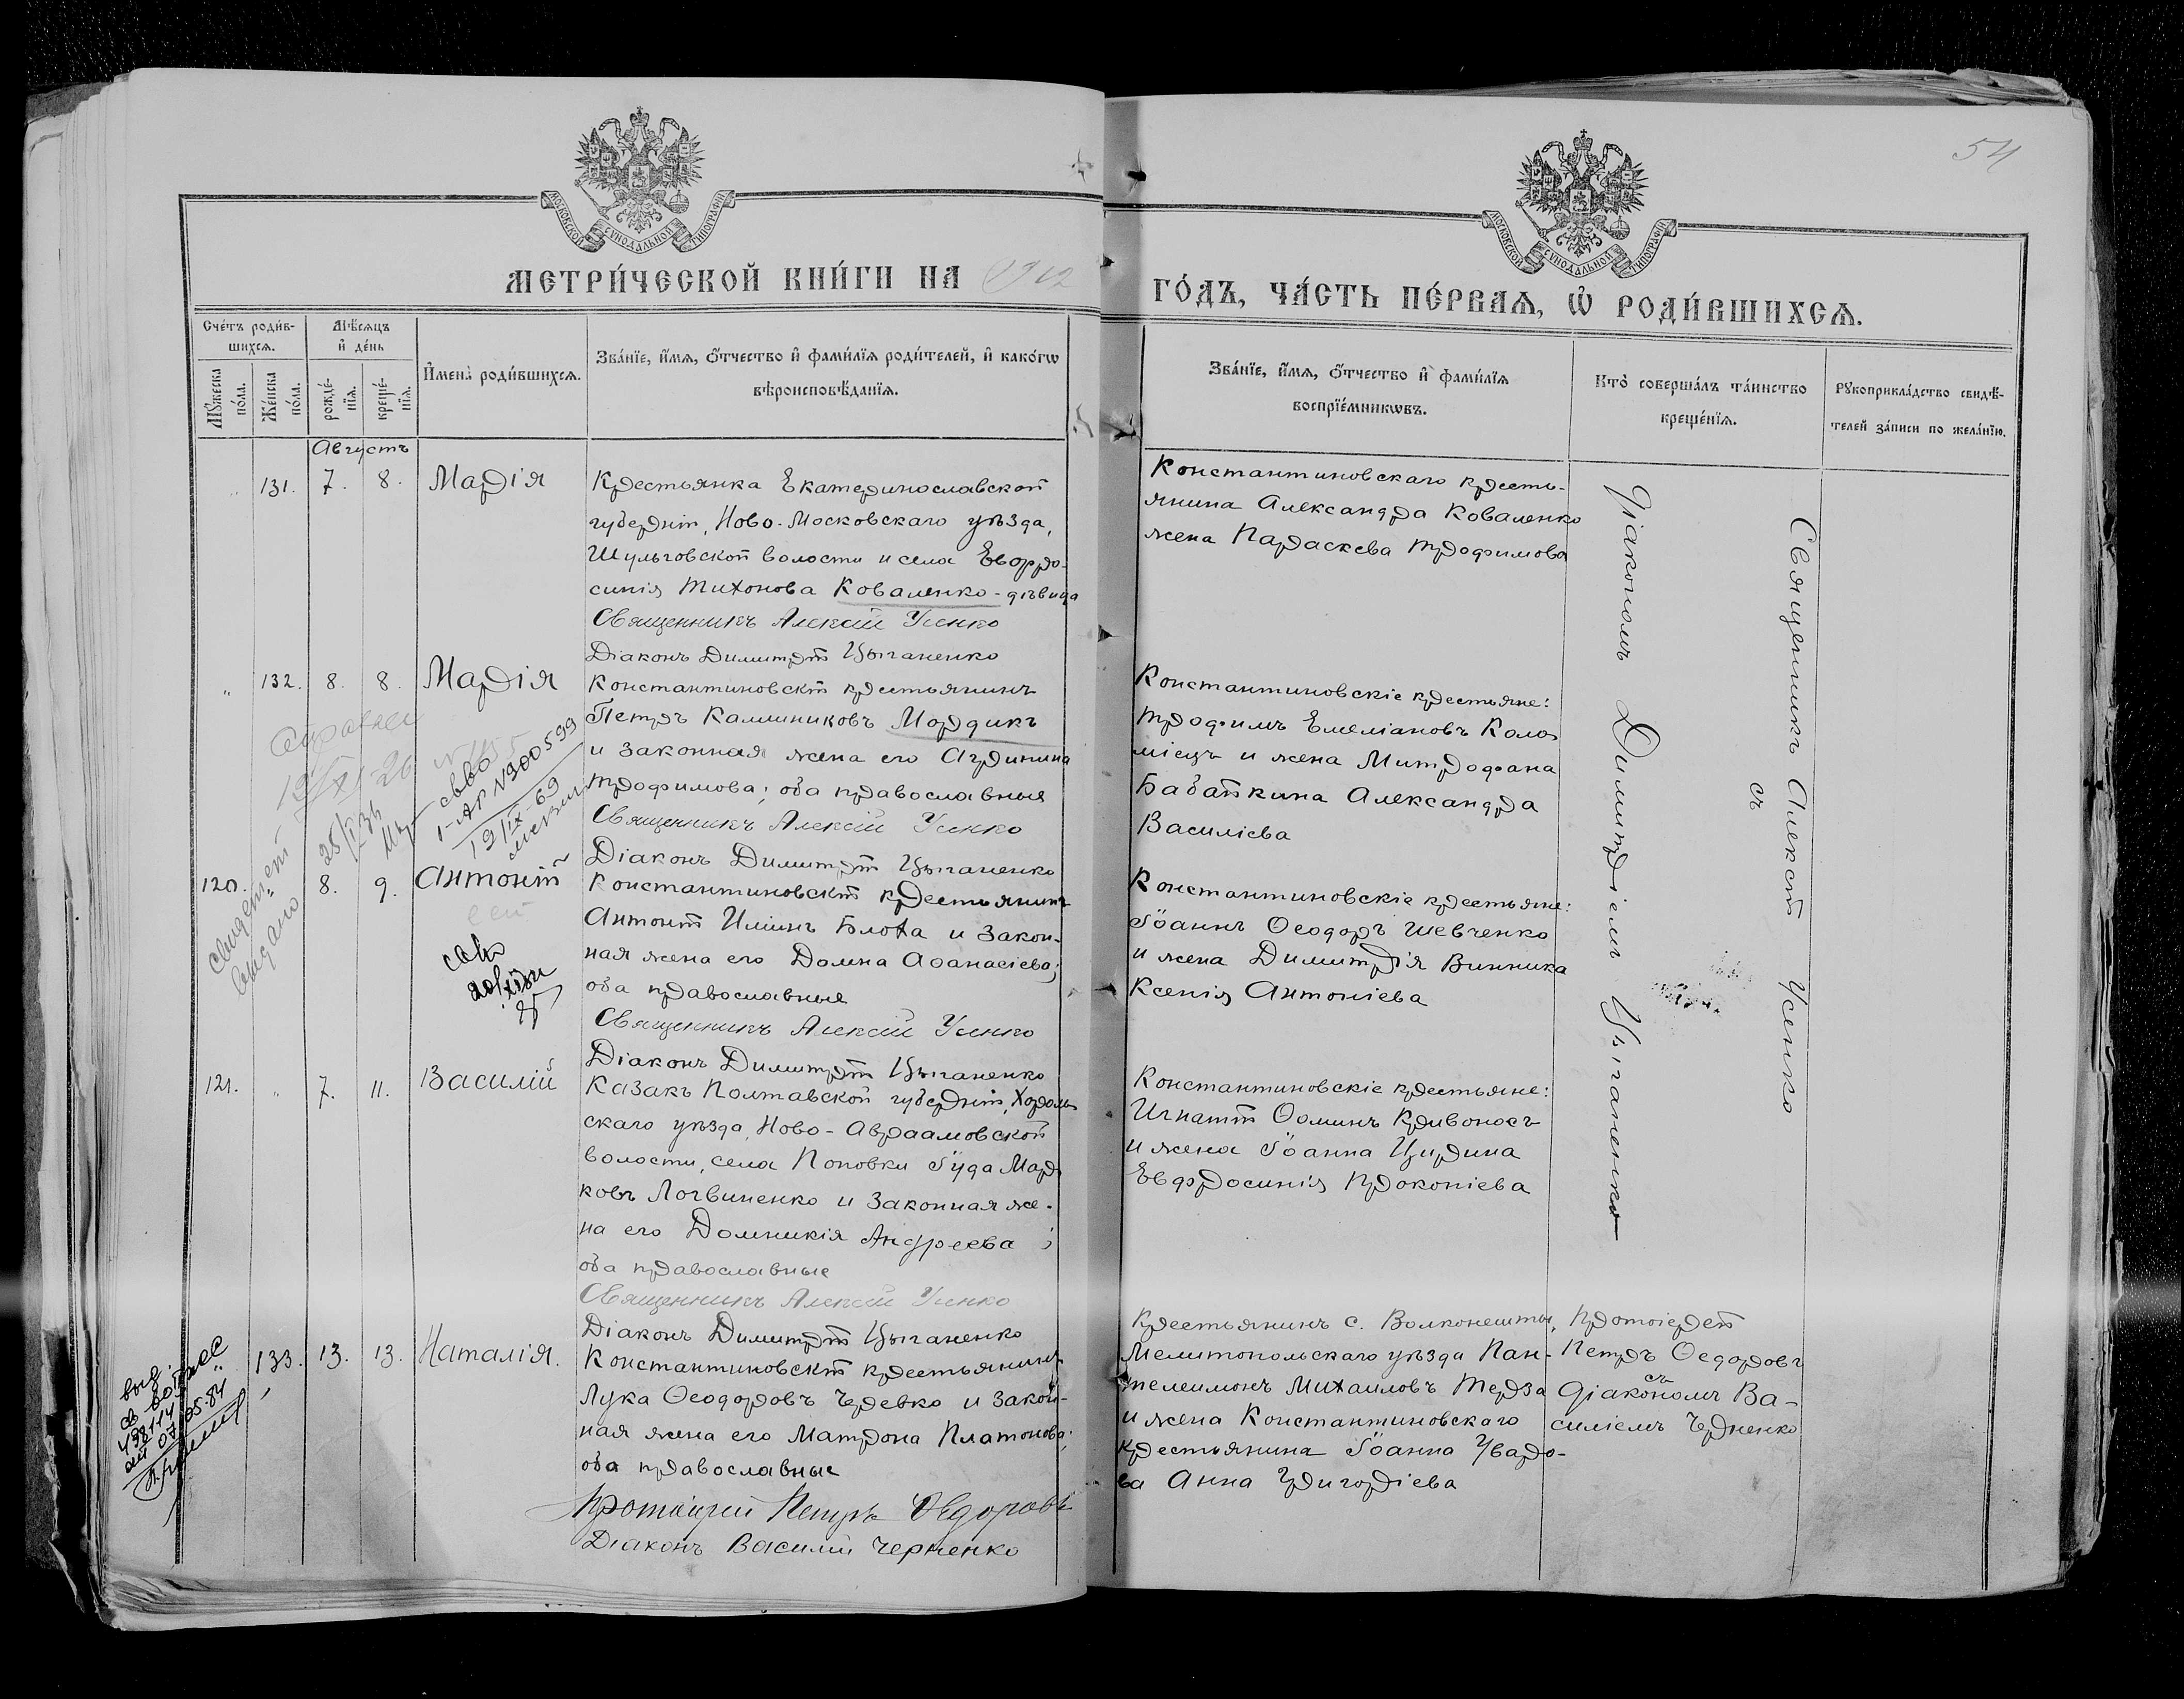 54
МОСКОВСКОЙ СѴНОДАЛЬНОЙ ТИПОГРАФІИ
МОСКОВСКОЙ СѴНОДАЛЬНОЙ ТИПОГРАФІИ
МЕТРИ́ЧЕСКОЙ КНИ́ГИ НА 1912
ГО́ДЪ, ЧА́СТЬ ПЕ́РВАѦ, Ѡ҆ РОДИ́ВШИХСѦ.
Сче́тъ роди́в-
шихсѧ.
Мꙋ́жеска по́ла.
Же́нска по́ла.
Мѣ́сѧцъ
и҆ де́нь
рожде́-
нїѧ.
креще́-
нїѧ.
И҆мена̀ роди́вшихсѧ.
Зва́нїе, и҆́мѧ, ѻ҆́тчество и҆ фами́лїѧ роди́телей, и҆ како́гѡ
вѣроисповѣ́данїѧ.
Зва́нїе, и҆́мѧ, ѻ҆́тчество и҆ фами́лїѧ
воспрїе́мникѡвъ.
Кто̀ соверша́лъ та́инство
креще́нїѧ.
Рꙋкоприкла́дство свидѣ́-
телей за́писи по жела́нїю.
Августъ
„ 131. 7. 8. Марія
Крестьянка Екатеринославской
губерніи, Ново-Московскаго уѣзда,
Шульговской волости и села Евфро-
синія Тихонова Коваленко - дѣвица
Священникъ Алексій Усенко
Діаконъ Димитрій Цыганенко
Константиновскаго кресть-
янина Александра Коваленко
жена Параскева Трофимова
Священникъ Алексій Усенко
съ
Діакономъ Димитріемъ Цыганенко
„ 132. 8. 8. Марія
Константиновскій крестьянинъ
Петръ Каллиниковъ Мордикъ
и законная жена его Агрипина
Трофимова; оба православные
Священникъ Алексій Усенко
Діаконъ Димитрій Цыганенко
Константиновскіе крестьяне:
Трофимъ Емеліановъ Коло
міецъ и жена Митрофана
Бабайкина Александра
Василіева
I-АР N300599
19/IX-69
120. „ 8. 9. Антоній
Константиновскій крестьянинъ
Антоній Иліинъ Блоха и закон-
ная жена его Домна Аѳанасіева;
оба православные
Священникъ Алексій Усенко
Діаконъ Димитрій Цыганенко
Константиновскіе крестьяне:
Іоаннъ Ѳеодоръ Шевченко
и жена Димитрія Винника
Ксенія Антоніева
выдано
121. „ 7. 11. Василій
Казакъ Полтавской губерніи, Хороль
скаго уѣзда, Ново-Авраамовской
волости, села Поповки Іуда Мар
ковъ Логвиненко и законная же-
на его Домникія Андреева ;
оба православные
Священникъ Алексій Усенко
Діаконъ Димитрій Цыганенко
Константиновскіе крестьяне:
Игнатій Ѳоминъ Кривоносъ
и жена Іоанна Цирина
Евфросинія Прокопіева
„ 133. 13. 13. Наталія.
Константиновскій крестьянинъ
Лука Ѳеодоровъ Черевко и закон-
ная жена его Матрона Платонова;
оба православные
Протоіерей Петръ Ѳедоровъ
Діаконъ Василій Черненко
Крестьянинъ с. Волконешты,
Мелитопольскаго уѣзда Пан-
телеимонъ Михаиловъ Терза
и жена Константиновскаго
крестьянина Іоанна Уваро-
ва Анна Григоріева
Протоіерей
Петръ Ѳедоровъ
съ
діакономъ Ва-
силіемъ Черненко